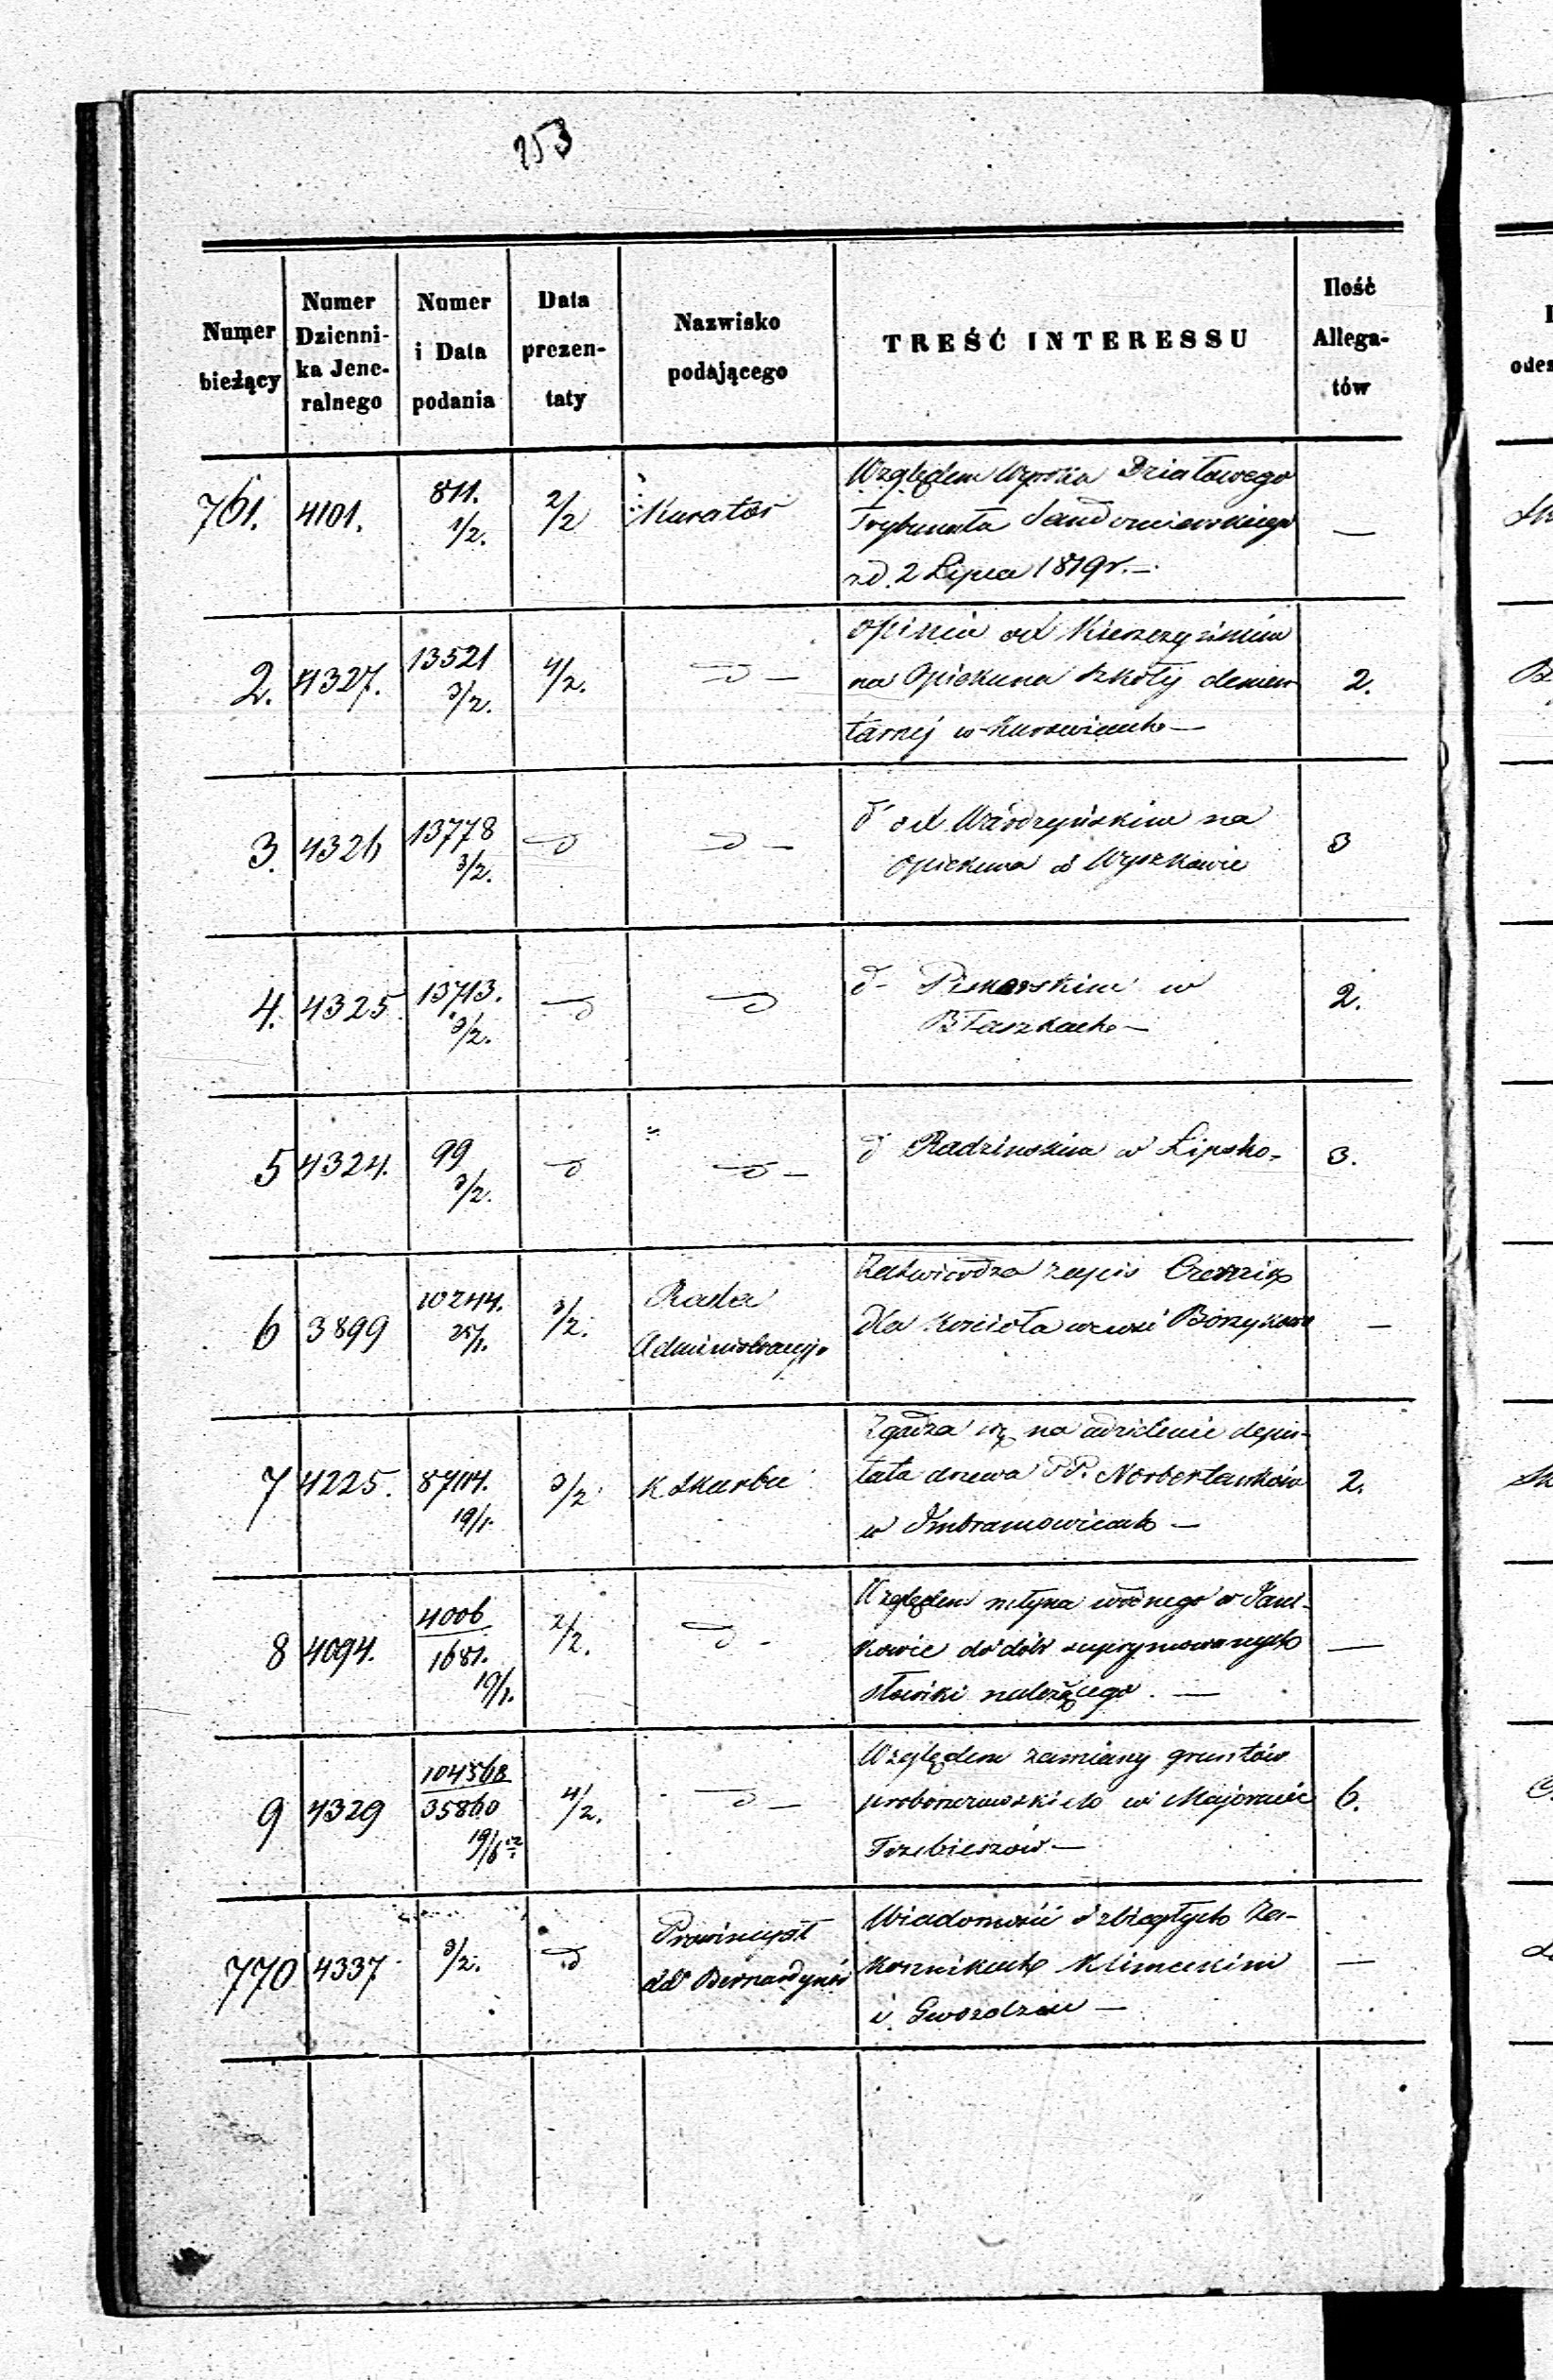 253
Numer bieżący | Numer Dziennika Jeneralnego | Numer i Data podania | Data prezentaty | Nazwisko podającego | TREŚĆ INTERESSU | Ilość Allegatów
761. | 4101. | 811. 1/2. | 2/2 | Kurator | Względem Wyroku Działowego
Trybunału Sandomierskiego
z d. 2 Lipca 1819 r. — | —
2. | 4327. | 13521 3/2. | 4/2. | d — | opinia od
na Opiekuna szkoły elemen
tarnej w Kurzwicach — | 2.
3. | 4326 | 13778 3/2. | d | d — | d° od na
opiekuna w Wyszkowie | 3
4. | 4325 | 13713. 3/2. | d | d | d - w
Błaszkach — | 2.
5 | 4324. | 99 3/2. | d | d — | d w Lipsko - | 3.
6 | 3899 | 10244. 25/1. | 3/2. | Rada
Administracyj. | Zatwierdza zapis
dla kościoła we wsi | —
7 | 4225. | 87114. 19/1. | 3/2 | K Skarbu | Zgadza się na udzielenie depu-
tata drzewa PP. Norbertanków
w Imbramowicach — | 2.
8 | 4094. | 4006 1681. 19/1. | 2/2. | d - | Względem młyna wodnego w Jani-
kowie do dóbr suprymowanych
należącego. — | —
9 | 4329 | 104568 35860 19/6 | 4/2. | d — | Względem zamiany gruntów
proboszczowskich w Majoracie
Trzebieszów — | 6.
770 | 4337 | 3/2. | d | Prowincyał
Bernardynów | Wiadomość o zbiegłych Za-
konnikach Klimeckim
i — | —